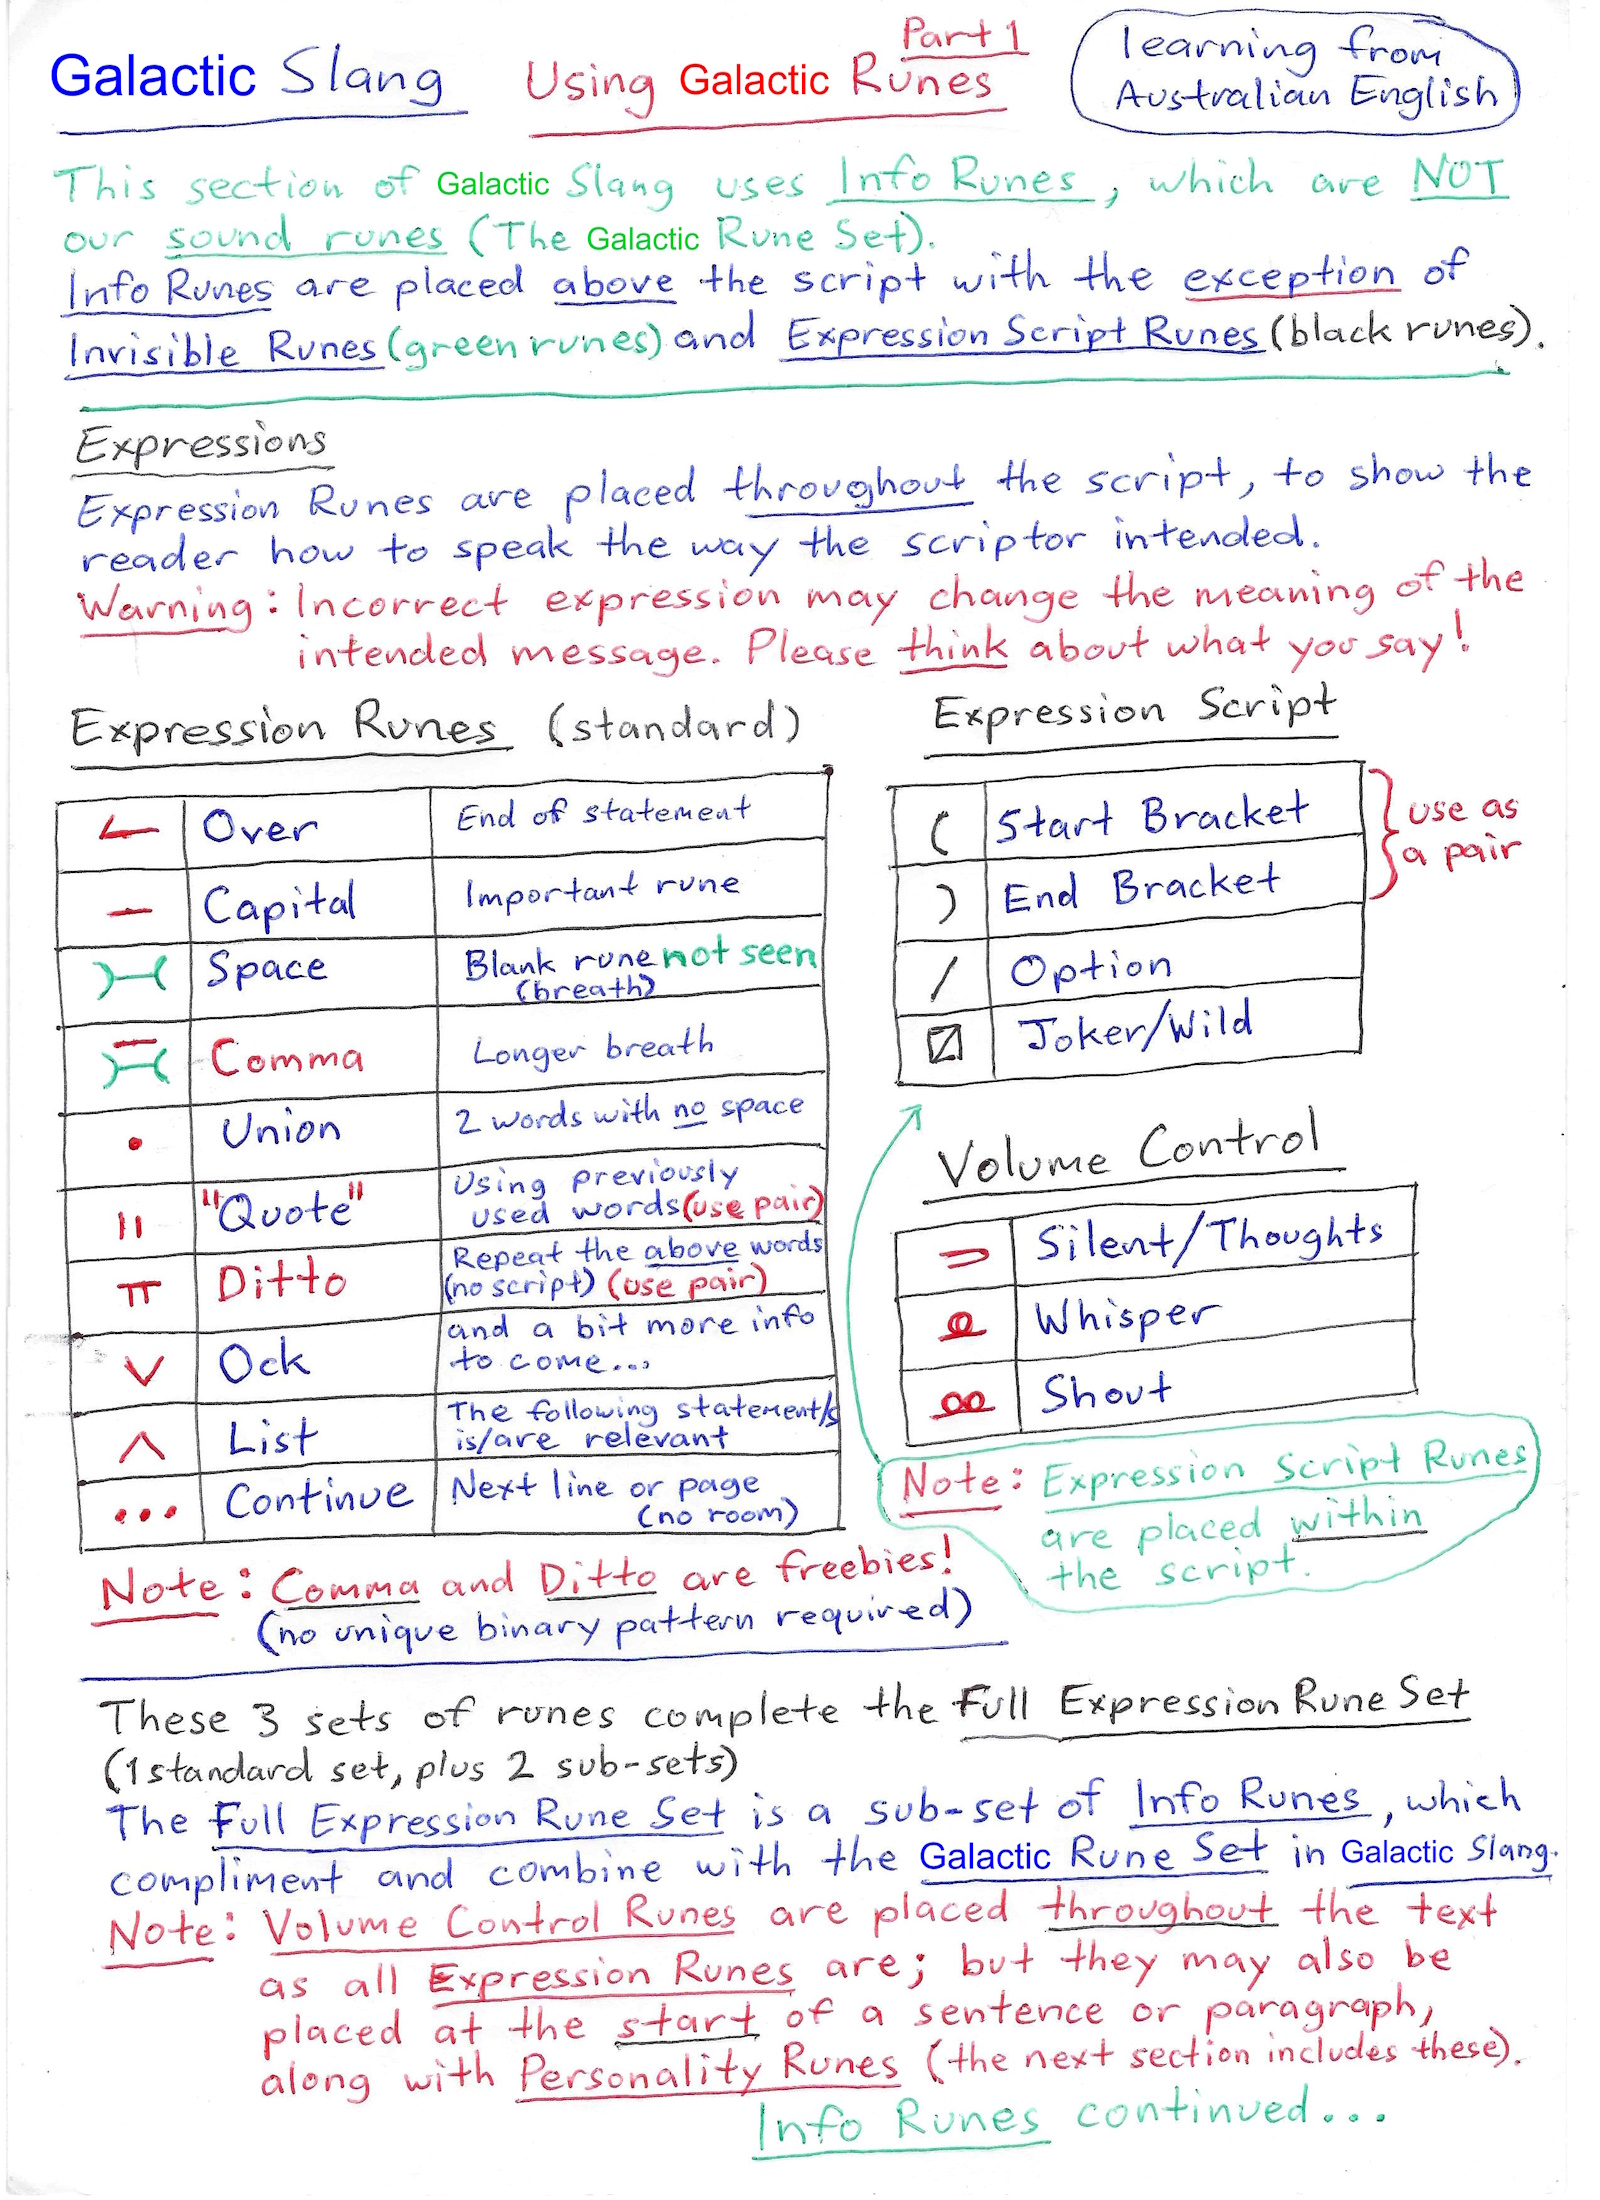 Part 1
Galactic Slang Using Galactic Runes
learning from
Australian English
This section of Galactic Slang uses Info Runes, which are NOT
our sound runes (The Galactic Rune Set).
Info Runes are placed above the script with the exception of
Invisible Runes (green runes) and Expression Script Runes (black runes).
Expressions
Expression Runes are placed throughout the script, to show the
reader how to speak the way the scriptor intended.
Warning: Incorrect expression may change the meaning of the
intended message. Please think about what you say!
Expression Runes (standard)
Over End of statement
Capital Important rune
Space Blank rune not seen
(breath)
Comma Longer breath
Union 2 words with no space
"Quote" Using previously
used words (use pair)
Ditto Repeat the above words
(no script) (use pair)
Ock and a bit more info
to come...
List The following statement/s
is/are relevant
... Continue Next line or page
(no room)
Note: Comma and Ditto are freebies!
(no unique binary pattern required)
Expression Script
( Start Bracket
) End Bracket
/ Option
Joker/Wild
use as
a pair
Volume Control
Silent/Thoughts
Whisper
Shout
Note: Expression Script Runes
are placed within
the script.
These 3 sets of runes complete the Full Expression Rune Set
(1 standard set, plus 2 sub-sets)
The Full Expression Rune Set is a sub-set of Info Runes, which
compliment and combine with the Galactic Rune Set in Galactic Slang.
Note: Volume Control Runes are placed throughout the text
as all Expression Runes are; but they may also be
placed at the start of a sentence or paragraph,
along with Personality Runes (the next section includes these).
Info Runes continued...